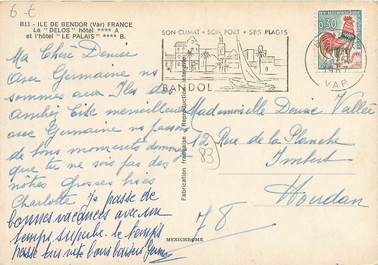 6 €
B11 - ILE DE BENDOR (Var) FRANCE
Le "DELOS" hôtel **** A
et l'hôtel "LE PALAIS" **** B.
Ma Chère Denise
Avec Germaine nous
sommes aux Iles de
Site merveilleux
avec Germaine ns passons
de bons moments dommage
que tu ne sois pas des
nôtres Grosses bises
Charlotte
Je passe de
bonnes vacances avec un
temps superbe. le temps
passe bien vite bons baisers
SON CLIMAT • SON PORT • SES PLAGES
BANDOL
VAR
0,30
Fabrication française - Reproduction interdite
MEXICHROME
Mademoiselle Denise Vallée
12 Rue de la Planche
83
Houdan
78